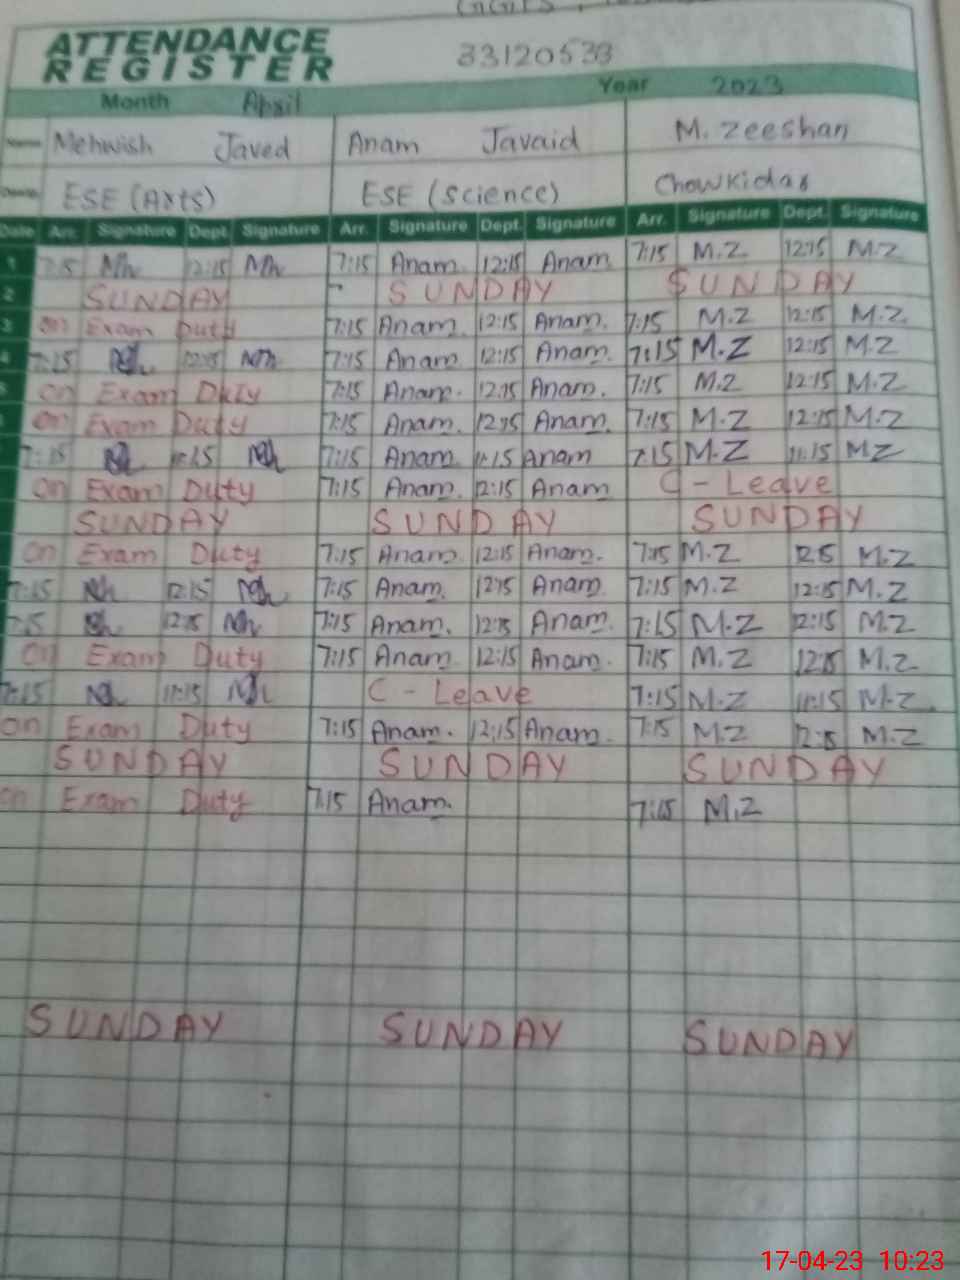 ATTENDANCE
REGISTER
33120533
Month April Year 2023
Mehwish Javed Anam Javaid M. Zeeshan
ESE (Arts) ESE (Science) Chowkidar
Date Arr. Signature Dept. Signature Arr. Signature Dept. Signature Arr. Signature Dept. Signature
1 7:15 Mh 12:15 Mh 7:15 Anam. 12:15 Anam 7:15 M.Z 12:15 M.Z
2 SUNDAY SUNDAY SUNDAY
3 on Exam Duty 7:15 Anam. 12:15 Anam. 7:15 M.Z 12:15 M.Z
4 7:15 12:15 Mh 7:15 Anam 12:15 Anam. 7:15 M.Z 12:15 M.Z
on Exam Duty 7:15 Anam. 12:15 Anam. 7:15 M.Z 12:15 M.Z
on Exam Duty 7:15 Anam. 12:15 Anam. 7:15 M.Z 12:15 M.Z
7:15 11:15 7:15 Anam 11:15 Anam 7:15 M.Z 11:15 MZ
on Exam Duty 7:15 Anam. 12:15 Anam C - Leave
SUNDAY SUNDAY SUNDAY
on Exam Duty 7:15 Anam. 12:15 Anam. 7:15 M.Z M.Z
7:15 12:15 7:15 Anam 12:15 Anam. 7:15 M.Z 12:15 M.Z
7:15 12:15 7:15 Anam. 12:15 Anam. 7:15 M.Z 12:15 M.Z
on Exam Duty 7:15 Anam. 12:15 Anam. 7:15 M.Z 12:15 M.Z
7:15 11:15 C - Leave 7:15 M.Z 11:15 M.Z.
on Exam Duty 7:15 Anam. 12:15 Anam. 7:15 M.Z 12:15 M.Z
SUNDAY SUNDAY SUNDAY
on Exam Duty 7:15 Anam. 7:15 M.Z
SUNDAY SUNDAY SUNDAY
17-04-23 10:23